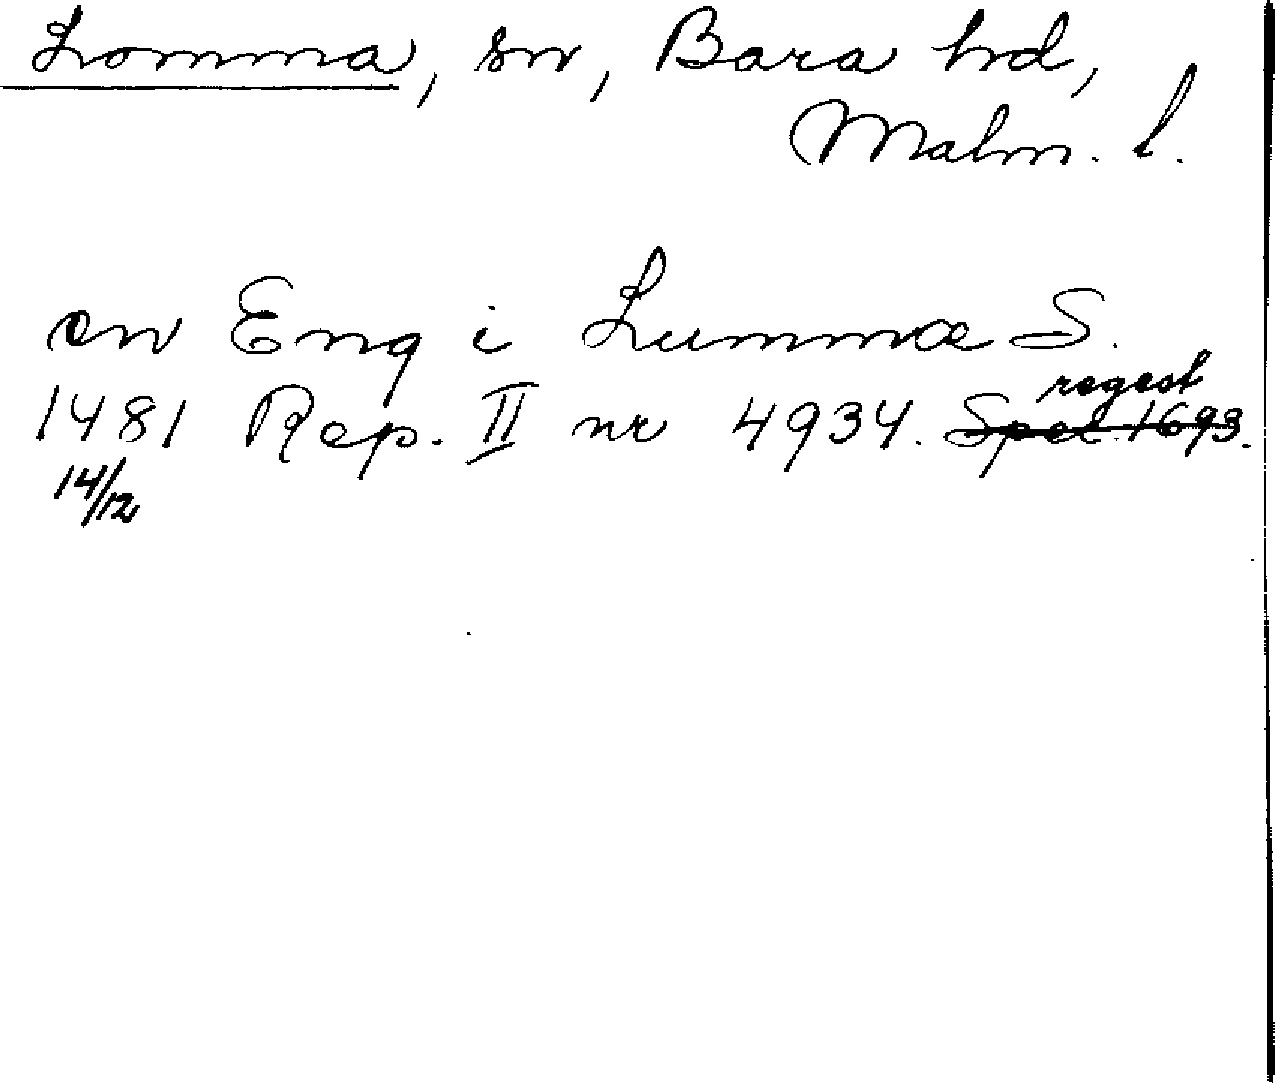 Lomma, sn, Bara hd,
Malm. l.
en Eng i Lummæ S.
regest
1481 Rep. II nr 4934. Spec. 1693.
14/12